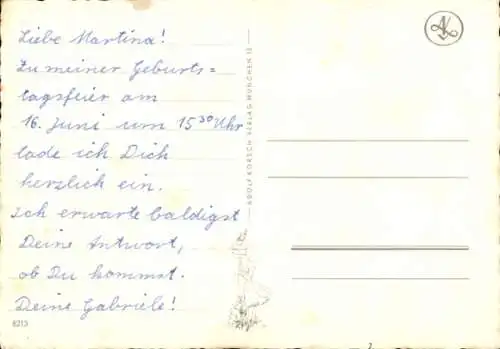 Liebe Martina!
Zu meiner Geburts=
tagsfeier am
16. Juni um 15³⁰ Uhr
lade ich Dich
herzlich ein.
Ich erwarte baldigst
Deine Antwort,
ob Du kommst.
Deine Gabriele!
8213
ADOLF KORSCH VERLAG MÜNCHEN 13
AK